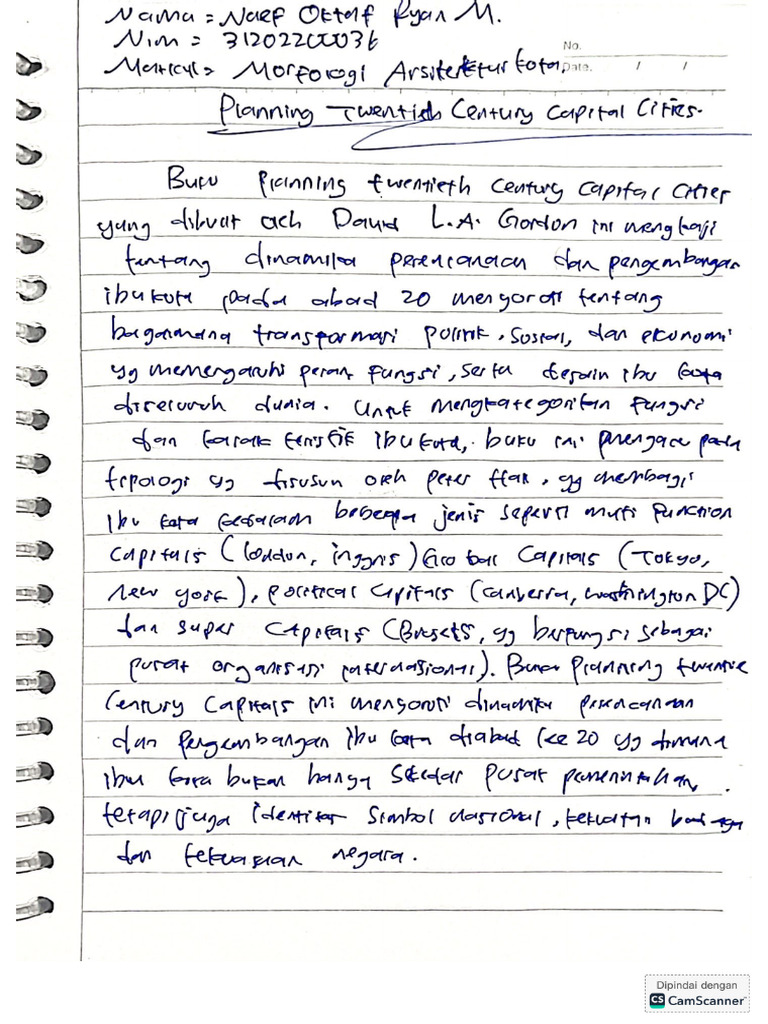 Nama = Naef Oktaf Ryan M.
Nim = 3120220036
No.
Matkul = Morfologi Arsitektur kota.
Date. / /
Planning Twentieth Century Capital Cities.
Buku Planning twentieth century capital cities
yang dibuat oleh David L.A. Gordon ini mengkaji
tentang dinamika perencanaan dan pengembangan
ibukota pada abad 20 menyoroti tentang
bagaimana transformasi politik, sosial, dan ekonomi
yg memengaruhi peran fungsi, serta desain ibu kota
diseluruh dunia. Untuk mengkategorikan fungsi
dan karakteristik ibukota, buku ini mengacu pada
tipologi yg disusun oleh peter Hall, yg membagi
ibu kota kedalam beberapa jenis seperti multi function
capitals (London, inggris) Global Capitals (Tokyo,
new york), political Capitals (Canberra, washington DC)
dan super Capitals (Brussels, yg berfungsi sebagai
pusat organisasi internasional). Buku Planning twentie
Century Capitals ini menyoroti dinamika perencanaan
dan pengembangan ibu kota diabad ke 20 yg dimana
ibu kota bukan hanya sekedar pusat pemerintahan,
tetapi juga identitas simbol nasional, kekuatan
dan kekuasaan negara.
Dipindai dengan
CS CamScanner